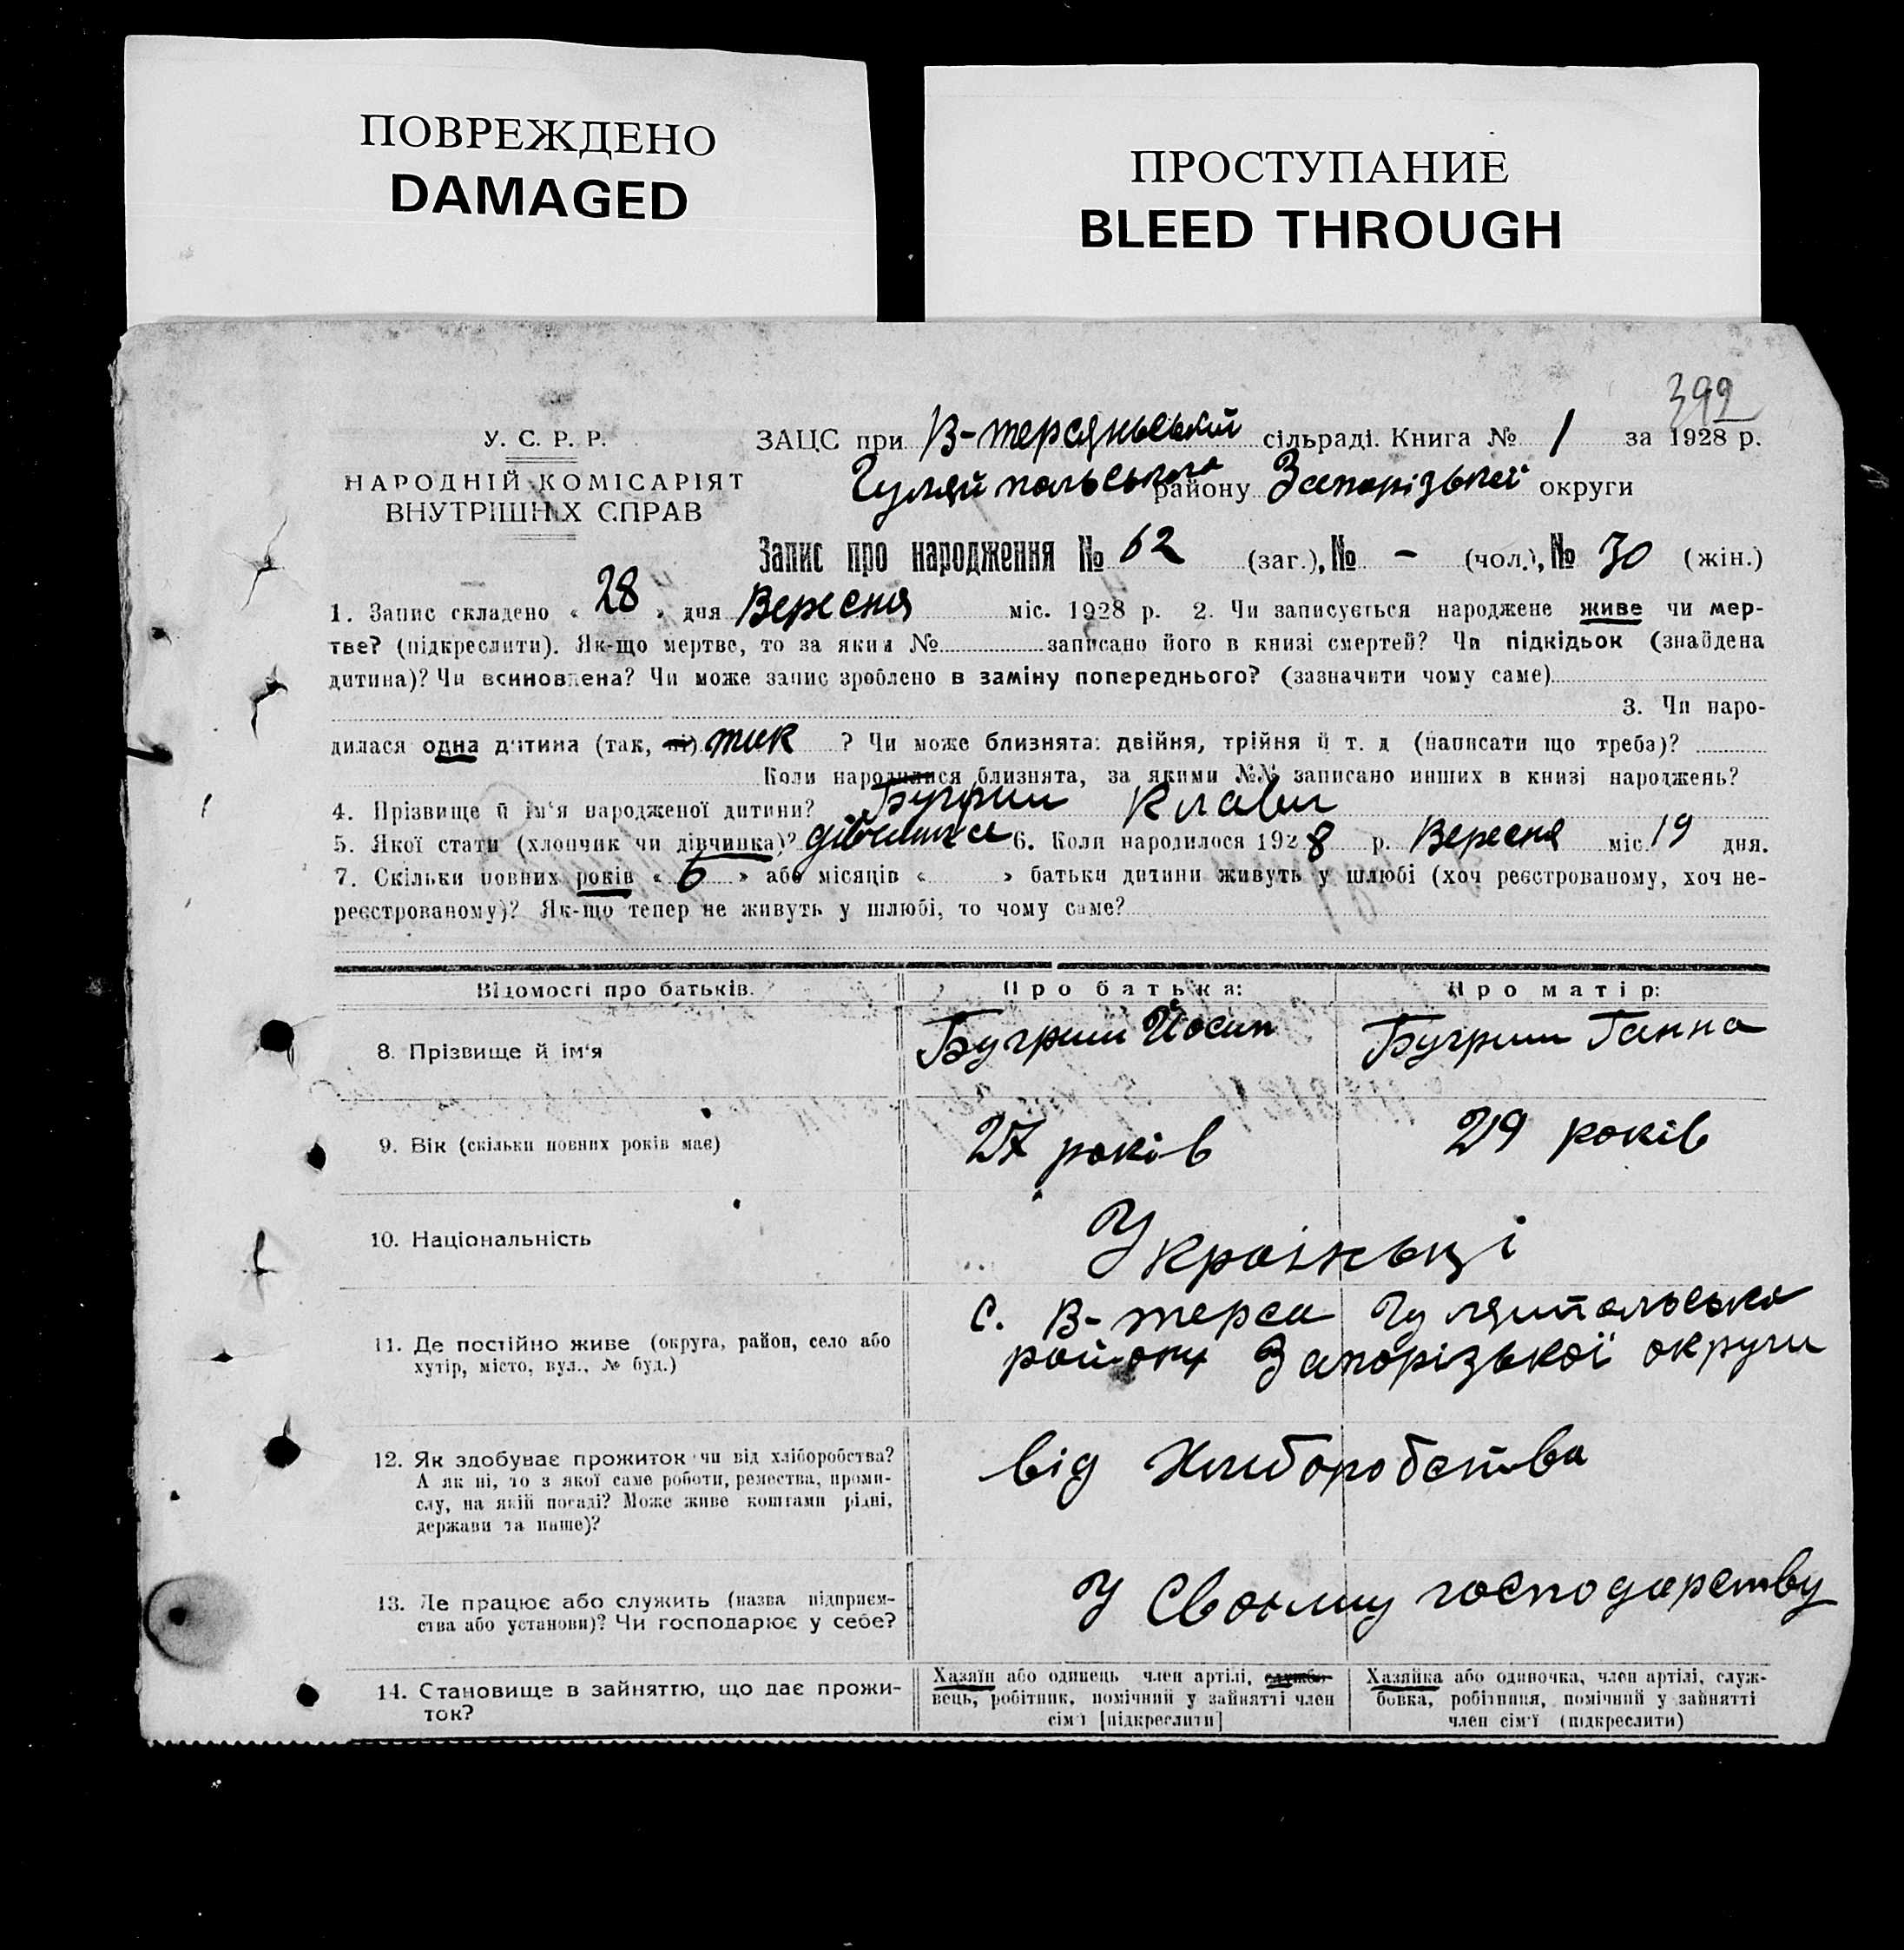 ПОВРЕЖДЕНО
DAMAGED
ПРОСТУПАНИЕ
BLEED THROUGH
392
У. С. Р. Р.
НАРОДНІЙ КОМІСАРІЯТ
ВНУТРІШНІХ СПРАВ
ЗАЦС при В-терсяньській сільраді. Книга № 1 за 1928 р.
Гуляйпольського району Запорізької округи
Запис про народження № 62 (заг.), № – (чол.), № 30 (жін.)
1. Запис складено « 28 » дня Вересня міс. 1928 р. 2. Чи записується народжене живе чи мер-
тве? (підкреслити). Як-що мертве, то за яким № записано його в книзі смертей? Чи підкідьок (знайдена
дитина)? Чи всиновлена? Чи може запис зроблено в заміну попереднього? (зазначити чому саме)
3. Чи наро-
дилася одна дитина (так, ні) так ? Чи може близнята: двійня, трійня й т. д (написати що треба)?
Коли народилися близнята, за якими №№ записано инших в книзі народжень?
4. Прізвище й ім‘я народженої дитини? Бугрим Клави
5. Якої стати (хлопчик чи дівчинка)? дівчинка 6. Коли народилося 1928 р. Вересня міс. 19 дня.
7. Скільки повних років « 6 » або місяців « » батьки дитини живуть у шлюбі (хоч реєстрованому, хоч не-
реєстрованому)? Як-що тепер не живуть у шлюбі, то чому саме?
Відомості про батьків. Про батька: Про матір:
8. Прізвище й ім‘я Бугрим Йосип Бугрим Ганна
9. Вік (скільки повних років має) 27 років 29 років
10. Національність Україньці
11. Де постійно живе (округа, район, село або
хутір, місто, вул., № буд.)
с. В-терса Гуляйпольсько
району Запорізької округи
12. Як здобуває прожиток чи від хліборобства?
А як ні, то з якої саме роботи, ремества, проми-
слу, на якій посаді? Може живе коштами рідні,
держави та инше)?
від Хліборобства
13. Де працює або служить (назва підприєм-
ства або установи)? Чи господарює у себе?
У Своєму господарству
14. Становище в зайняттю, що дає прожи-
ток?
Хазяїн або одинець член артілі, службо-
вець, робітник, помічний у зайнятті член
сім‘ї [підкреслити]
Хазяйка або одиночка, член артілі, служ-
бовка, робітниця, помічний у зайнятті
член сім‘ї (підкреслити)